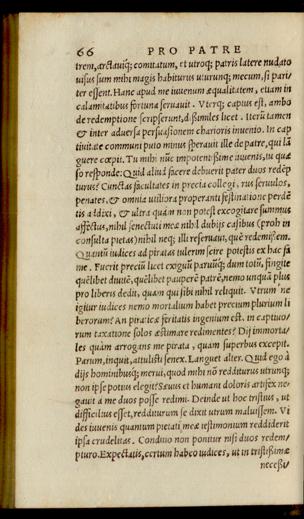 66 PRO PATRE
trem, arctauiq; comitatum, et utroq; patris latere nudato
uisus sum mihi magis habiturus utrunq; mecum, si pari/
ter essent. Hanc apud me iuuenum æqualitatem, etiam in
calamitatibus fortuna seruauit. Vterq; captus est, ambo
de redemptione scripserunt, dissimiles licet. Iterū tamen
& inter aduersa persuasionem charioris inuenio. In cap
tiuitate communi puto minus sperauit ille de patre, qui lā
guere cœpit. Tu mihi nūc impotentissime iuuenis, tu quæ
so responde: Quid aliud facere debuerit pater duos redēp
turus? Cunctas facultates in precia collegi, rus seruulos,
penates, & omnia uiliora properanti festinatione perdē
tis addixi, & ultra quàm non potest excogitare summus
affectus, nihil senectuti meæ nihil dubijs casibus (proh in
consulta pietas) nihil neq; illi reseruaui, quē redemissem.
Quantū iudices ad piratas tulerim scire potestis ex hac fa
me. Fuerit preciū licet exiguū paruūq; dum totū, fingite
quēlibet diuitē, quēlibet pauperē patrē, nemo unquā plus
pro liberis dedit, quam qui sibi nihil reliquit. Vtrum ne
igitur iudices nemo mortalium habet precium plurium li
berorum? An piraticæ feritatis ingenium est, in captiuo/
rum taxatione solos æstimare redimentes? Dij immorta/
les quàm arrogans me pirata, quàm superbus excepit.
Parum, inquit, attulisti senex. Languet alter. Quid ego à
dijs hominibusq; merui, quod mihi nō redditurus utrunq;
non ipse potius elegit? Sæuus et humani doloris artifex ne/
gauit à me duos posse redimi. Deinde ut hoc tristius, ut
difficilius esset, redditurum se dixit utrum maluissem. Vi
des iuuenis quantum pietati meæ testimonium reddiderit
ipsa crudelitas. Conditio non ponitur nisi duos redem/
pturo. Expectatis, certum habeo iudices, ut in tristissimæ
necessi/